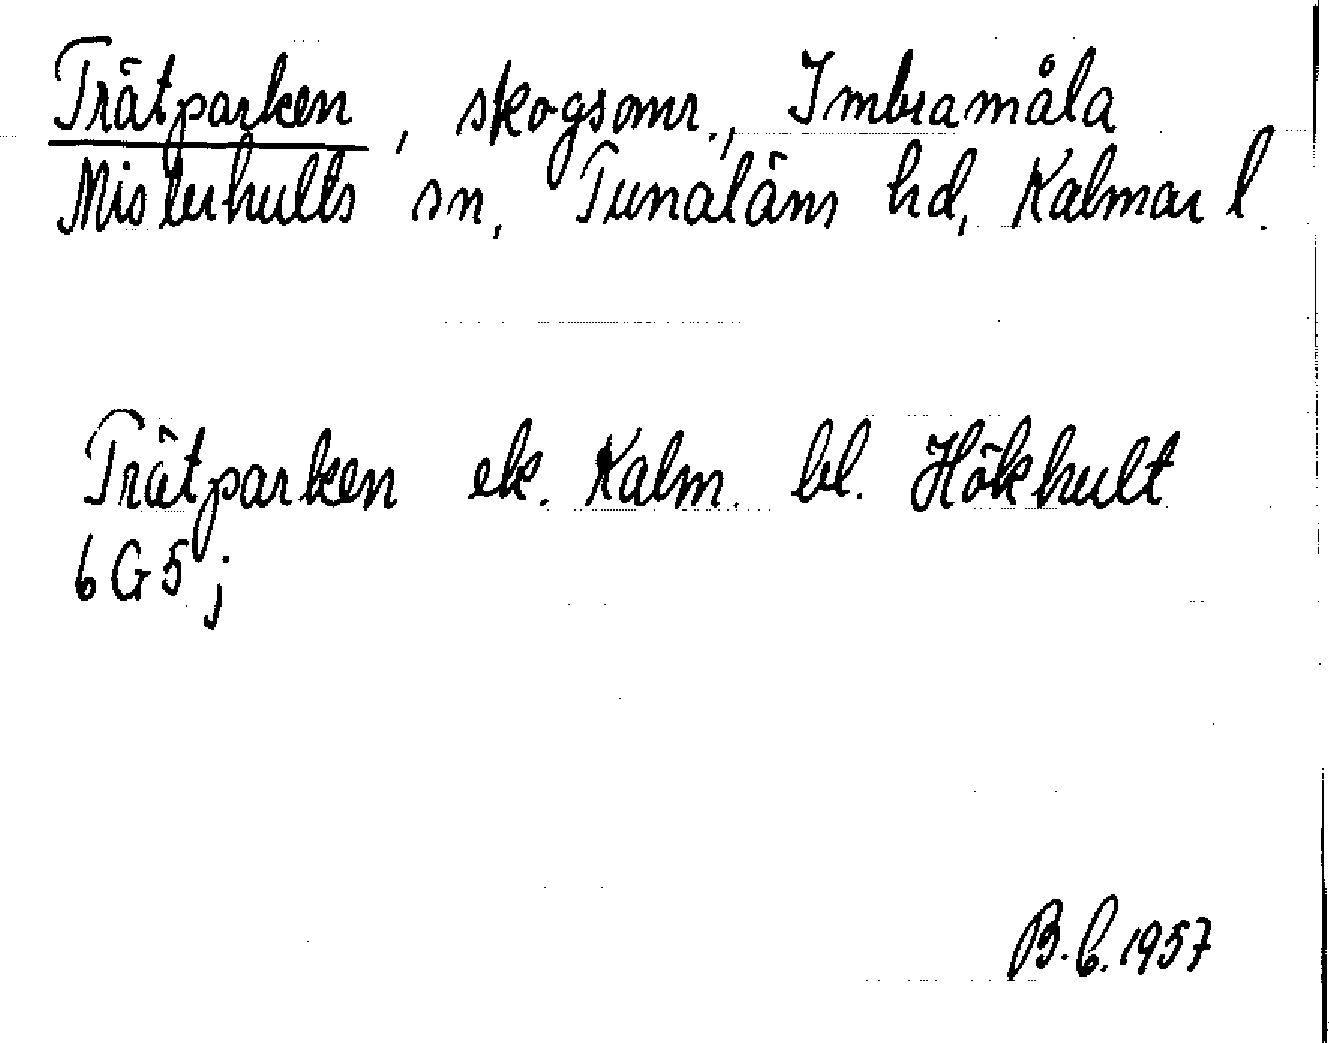 Trätparken, skogsomr., Imbramåla
Misterhults sn, Tunaläns hd, Kalmar l.
Trätparken ek. Kalm. bl. Hökhult
6G5j
B.C. 1957